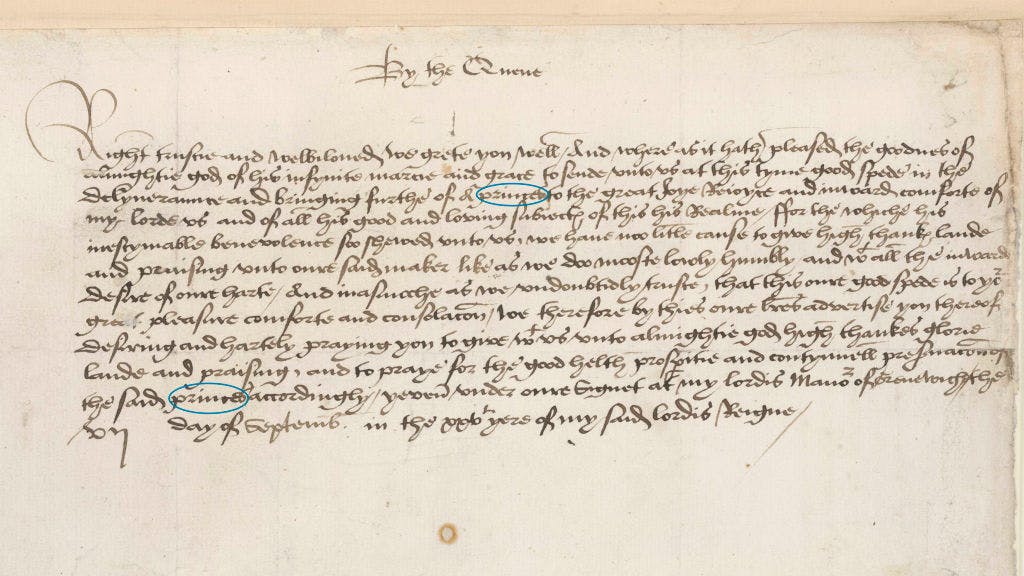 By the Quene
Right trustie and welbiloved we grete you well And where as it hath pleased the goodnes of
almightie god of his infynite marcie and grace to sende unto us at this tyme good spede in the
delyveraunce and bringing furthe of a princes to the great Joye Rejoyce and inward comforte of
my lorde us and of all his good and loving subiects of this his Realme / ffor the whiche his
inestymable benevolence soo shewed unto us / we have noo litle cause to give high thankes laude
and praising unto oure said maker like as we doo mooste lowly humbly and wt all the inward
desire of oure harte / And inasmuche as we undoubtidly truste that this oure good spede is to yor
great pleasure comforte and consolacon / we therefore by thies oure lres advertise you thereof
desiring and hartely praying you to give wt us unto almightie god high thankes glorie
laude and praising / and to praye for the good helth prosperitie and contynuell preservacon of
the said princes accordingly / yeven under oure Signet at my lordis Manor of Grenewiche the
vij day of Septembr in the xxv yere of my said lordis Reigne /